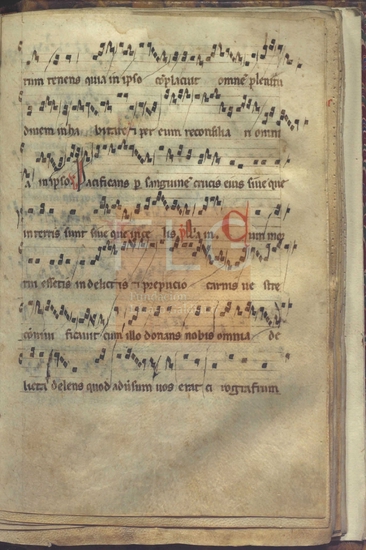 tum tenens quia in ipso cōplacuit omnē plenitu
dinem inha bitare ⁊ per eum reconsilia ri omni
a in ipso pacificans p sanguinē crucis eius siue que
in terris sunt siue que in ce lis pl̄a in Cum mor
tui essetis in delictis ⁊ prepucio carnis ue stre
cōuiui ficauit cum illo donans nobis omnia de
licta delens quod adusum uos erat ci rografum